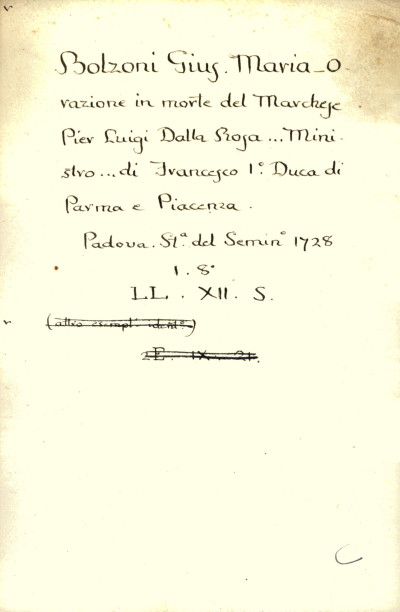 Bolzoni Gius. Maria - O
razione in morte del Marchese
Pier Luigi Dalla Rosa ... Mini-
stro ... di Francesco 1.° Duca di
Parma e Piacenza.
Padova. St.ª del Semin.° 1728
1. 8°
LL. XII. S.
(altro esempl. ident.°)
E. IX. 21.